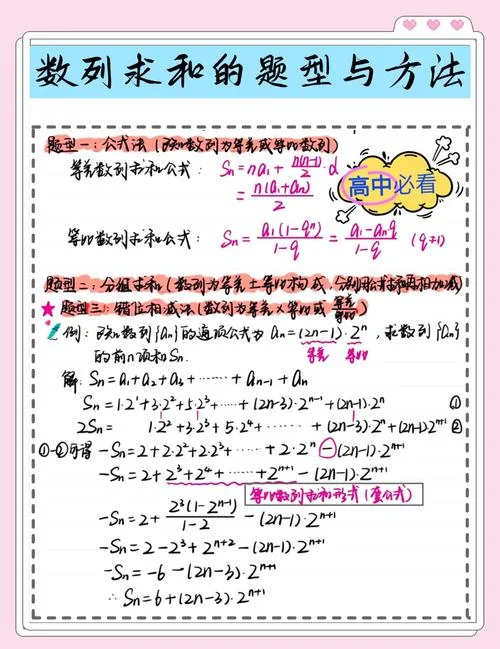 数列求和的题型与方法
题型一：公式法（已知数列为等差或等比数列）
等差数列求和公式： Sn=na₁+n(n-1)/2·d
=n(a₁+an)/2
高中必看
等比数列求和公式： Sn=a₁(1-qⁿ)/1-q=a₁-anq/1-q (q≠1)
题型二：分组求和（数列为等差±等比构成，分别用公式求和再相加减）
★题型三：错位相减法（数列为等差×等比或等差/等比）
例：已知数列{an}的通项公式为an=(2n-1)·2ⁿ，求数列{an}
等差 等比
的前n项和Sn.
解：Sn=a₁+a₂+a₃+······+an-1+an
Sn=1·2¹+3·2²+5·2³+······+(2n-3)·2ⁿ⁻¹+(2n-1)·2ⁿ ①
2Sn= 1·2²+3·2³+5·2⁴+······+(2n-3)·2ⁿ+(2n-1)·2ⁿ⁺¹ ②
①-②可得 -Sn=2+2·2²+2·2³+······+2·2ⁿ-(2n-1)·2ⁿ⁺¹
-Sn=2+2³+2⁴+······+2ⁿ⁺¹-(2n-1)·2ⁿ⁺¹
等比数列求和形式（套公式）
-Sn=2+2³(1-2ⁿ⁻¹)/1-2-(2n-1)·2ⁿ⁺¹
-Sn=2-2³+2ⁿ⁺²-(2n-1)·2ⁿ⁺¹
-Sn=-6-(2n-3)·2ⁿ⁺¹
∴Sn=6+(2n-3)·2ⁿ⁺¹